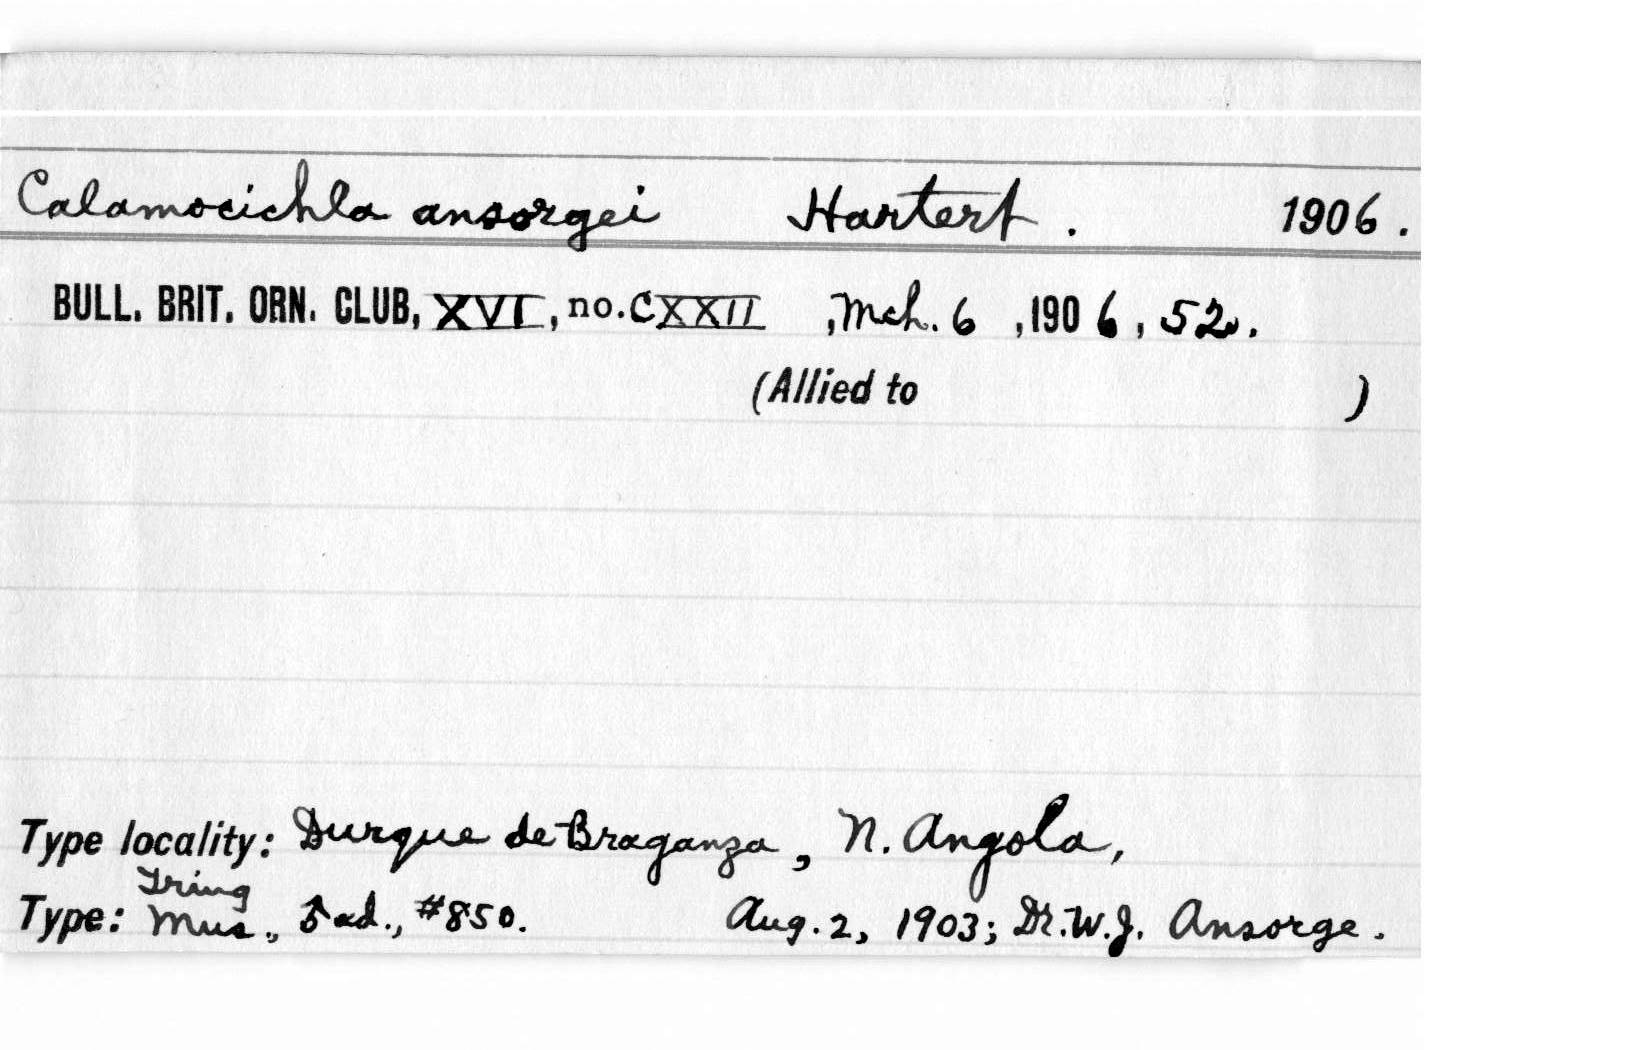 Calamocichla ansorgei Hartert. 1906.
BULL. BRIT. ORN. CLUB, XVI, no. CXXII, Mch. 6, 1906, 52.
(Allied to )
Type locality: Durque de Braganza, N. Angola,
Tring
Type: Mus., ♂ ad., #850. Aug. 2, 1903; Dr. W. J. Ansorge.